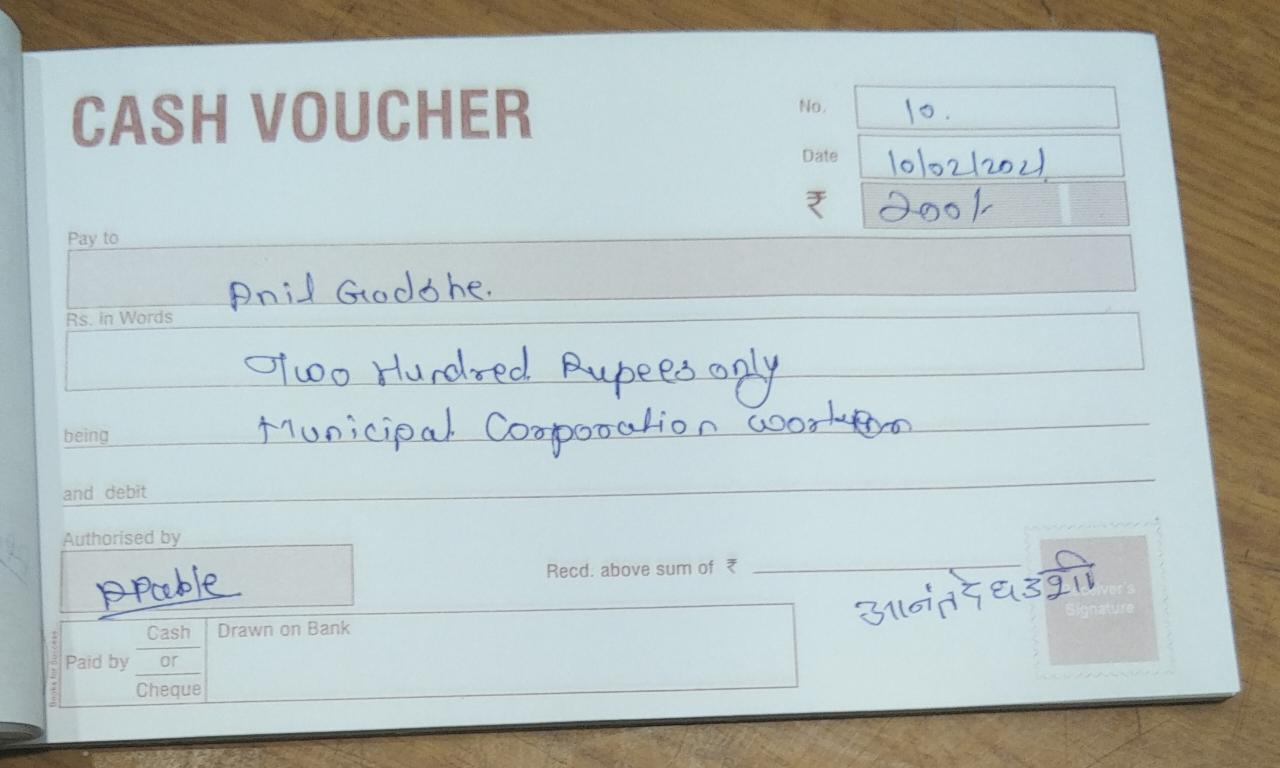 CASH VOUCHER
No. 10.
Date 10/02/2021
₹ 200/-
Pay to
Anil Gadshe.
Rs. in Words
Two Hundred Rupees only
being Municipal Corporation
and debit
Authorised by
Recd. above sum of ₹
Receiver's
Signature
Paid by Cash or Cheque
Drawn on Bank
Books for Success